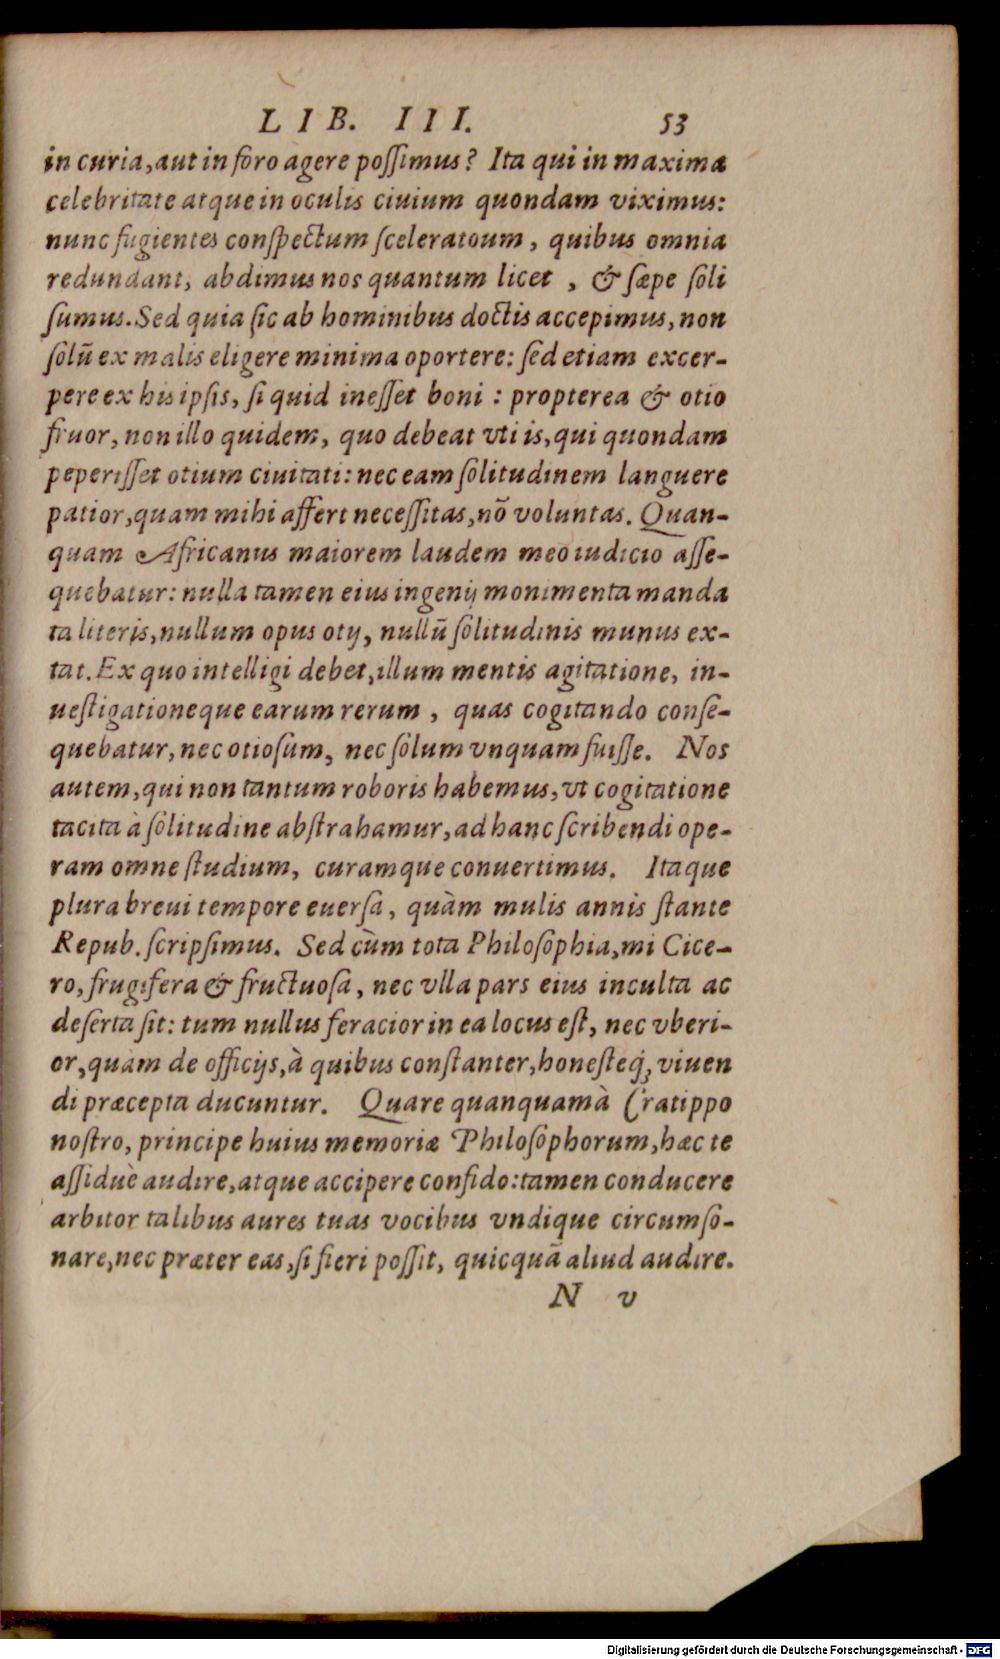 LIB. III. 53
in curia, aut in foro agere poſſimus? Ita qui in maxima
celebritate atque in oculis ciuium quondam viximus:
nunc fugientes conſpectum ſceleratoum, quibus omnia
redundant, abdimus nos quantum licet, & ſæpe ſoli
ſumus. Sed quia ſic ab hominibus doctis accepimus, non
ſolũ ex malis eligere minima oportere: ſed etiam excer-
pere ex his ipſis, ſi quid ineſſet boni: propterea & otio
fruor, non illo quidem, quo debeat vti is, qui quondam
peperiſſet otium ciuitati: nec eam ſolitudinem languere
patior, quam mihi affert neceſſitas, nõ voluntas. Quan-
quam Africanus maiorem laudem meo iudicio aſſe-
quebatur: nulla tamen eius ingenij monimenta manda
ta literis, nullum opus otij, nullũ ſolitudinis munus ex-
tat. Ex quo intelligi debet, illum mentis agitatione, in-
ueſtigationeque earum rerum, quas cogitando conſe-
quebatur, nec otioſum, nec ſolum vnquam fuiſſe. Nos
autem, qui non tantum roboris habemus, vt cogitatione
tacita à ſolitudine abſtrahamur, ad hanc ſcribendi ope-
ram omne ſtudium, curamque conuertimus. Itaque
plura breui tempore euerſa, quàm mulis annis ſtante
Repub. ſcripſimus. Sed cùm tota Philoſophia, mi Cice-
ro, frugifera & fructuoſa, nec vlla pars eius inculta ac
deſerta ſit: tum nullus feracior in ea locus eſt, nec vberi-
or, quàm de officijs, à quibus conſtanter, honeſteq́; viuen
di præcepta ducuntur. Quare quanquam à Cratippo
noſtro, principe huius memoriæ Philoſophorum, hæc te
aſſiduè audire, atque accipere confido: tamen conducere
arbitor talibus aures tuas vocibus vndique circumſo-
nare, nec præter eas, ſi fieri poſſit, quicquã aliud audire.
N v
Digitalisierung gefördert durch die Deutsche Forschungsgemeinschaft - DFG